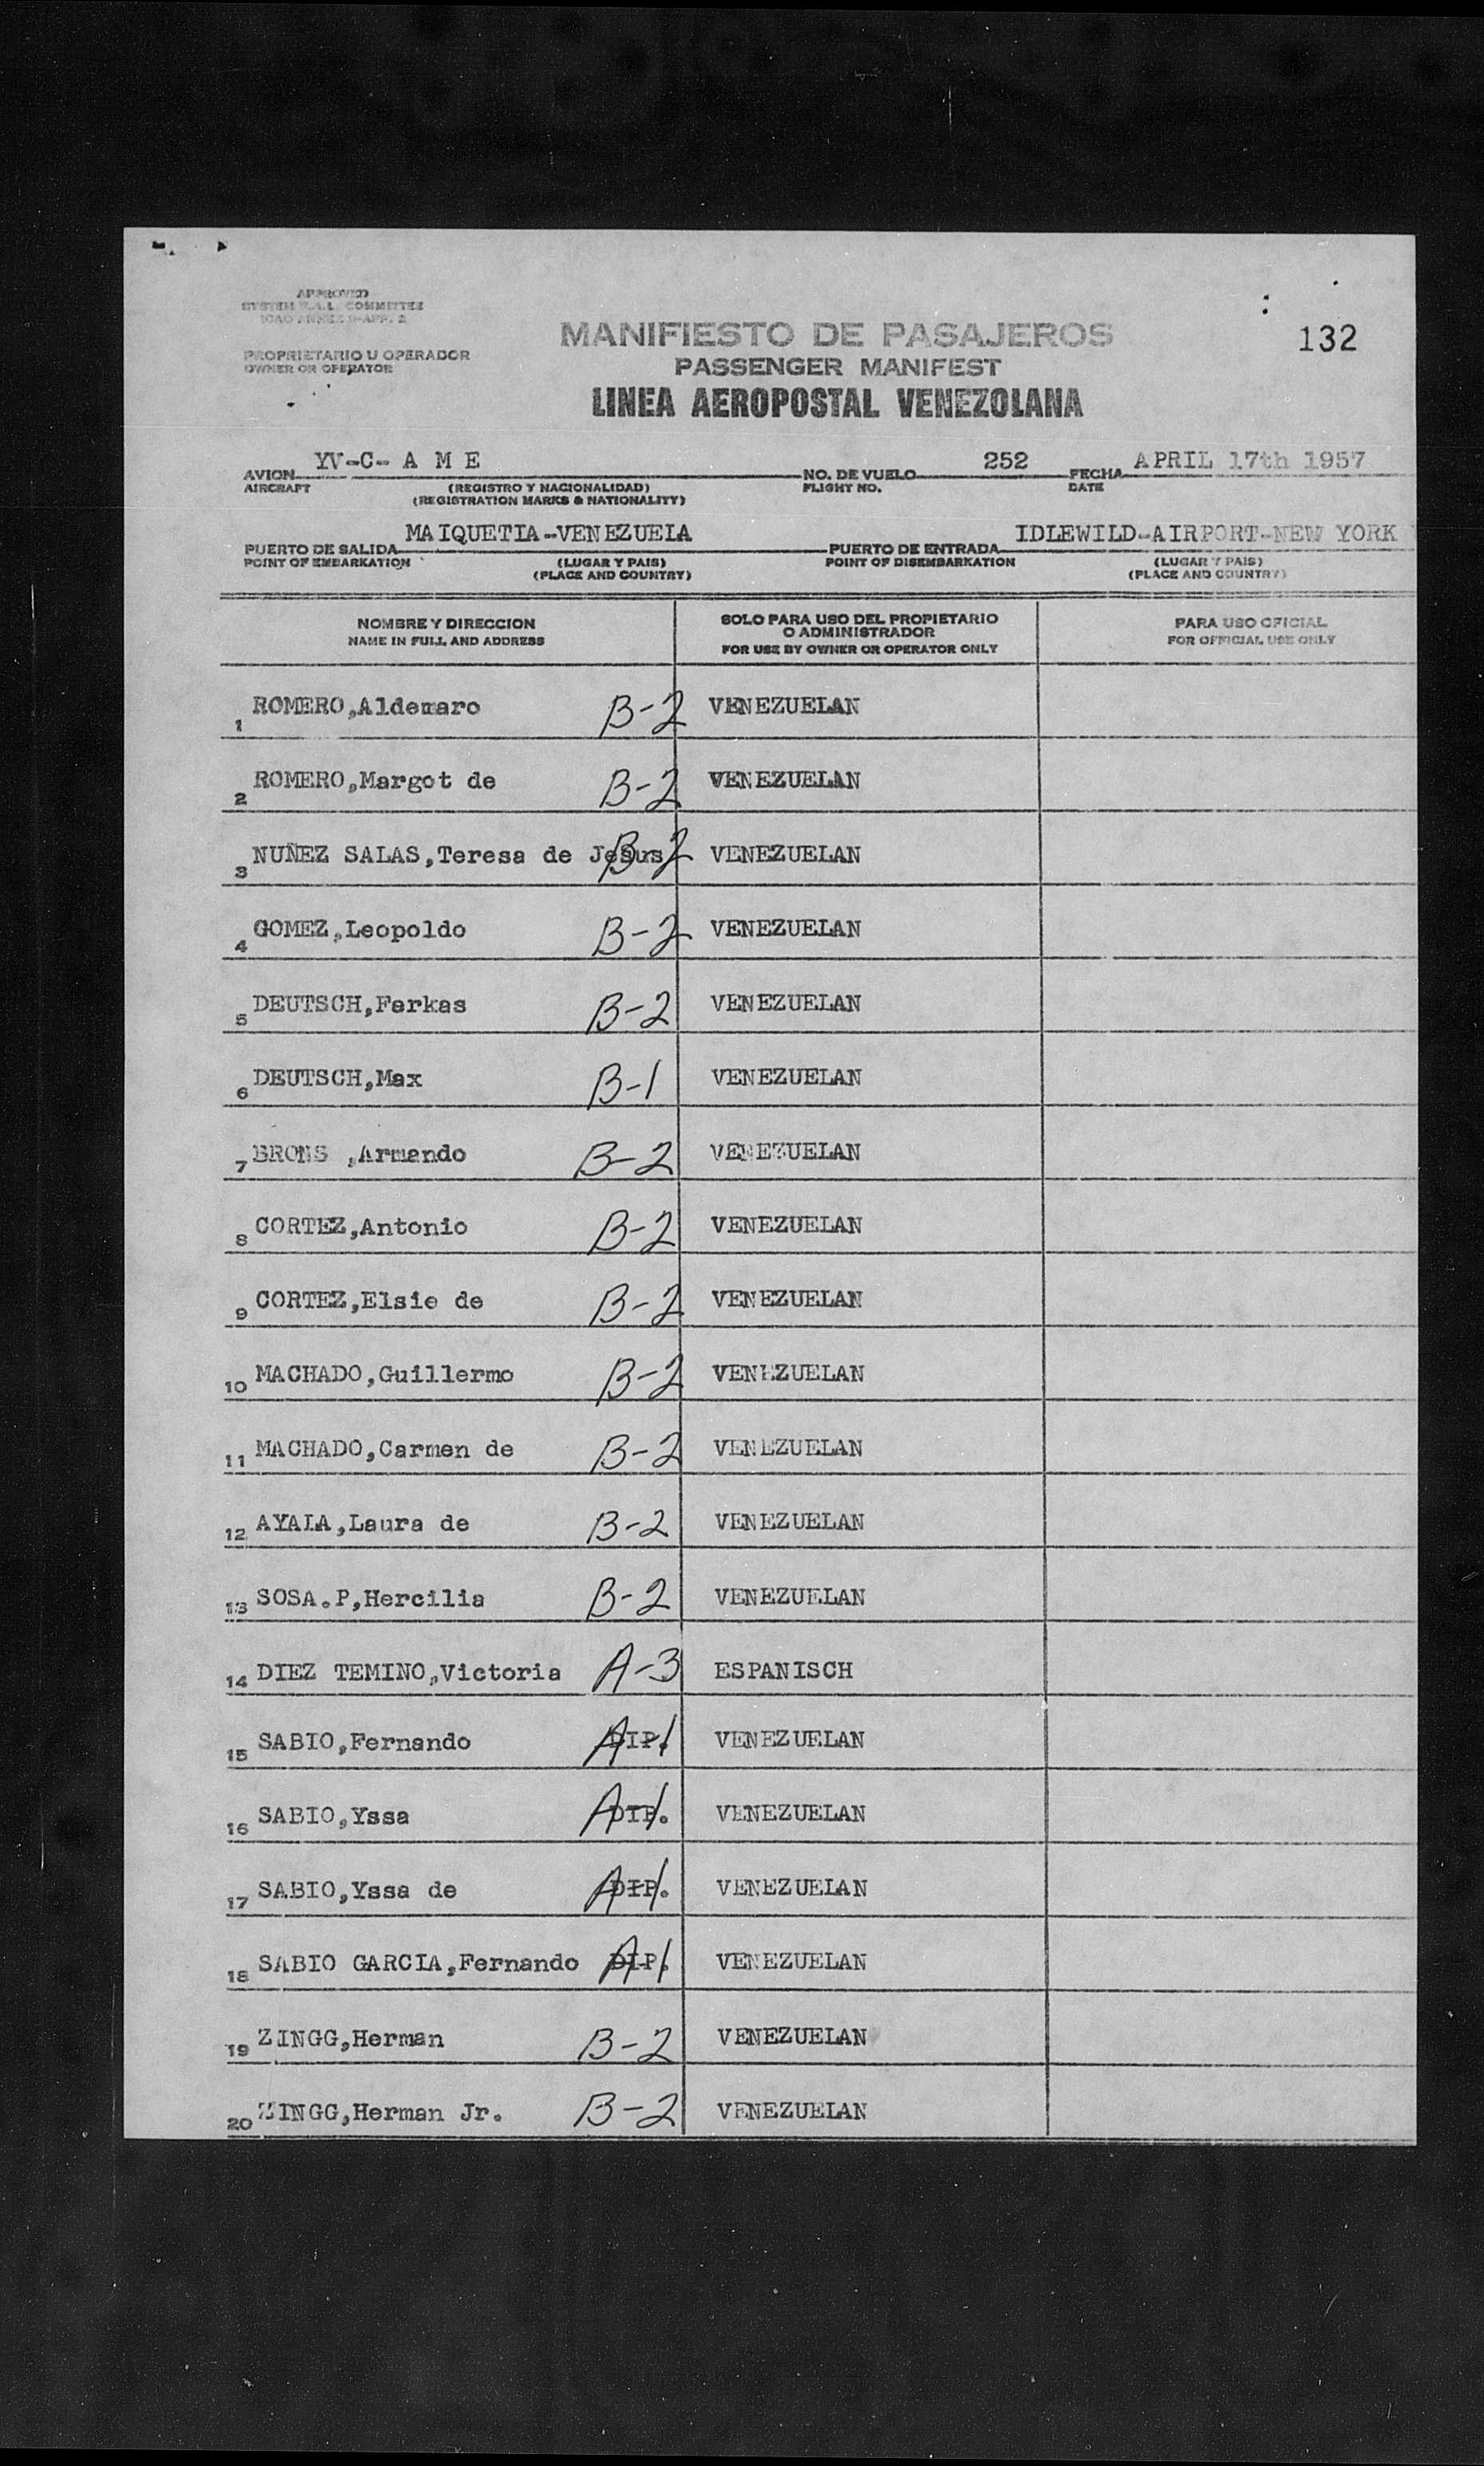 APPROVED
SYSTEM F.A.L. COMMITTEE
ICAO ANNEX 9-APP. 2
MANIFIESTO DE PASAJEROS
132
PROPRIETARIO U OPERADOR
OWNER OR OPERATOR
PASSENGER MANIFEST
LINEA AEROPOSTAL VENEZOLANA
AVION YV-C- A M E NO. DE VUELO 252 FECHA APRIL 17th 1957
AIRCRAFT (REGISTRO Y NACIONALIDAD) FLIGHT NO. DATE
(REGISTRATION MARKS & NATIONALITY)
PUERTO DE SALIDA MAIQUETIA-VENEZUELA PUERTO DE ENTRADA IDLEWILD-AIRPORT-NEW YORK
POINT OF EMBARKATION (LUGAR Y PAIS) POINT OF DISEMBARKATION (LUGAR Y PAIS)
(PLACE AND COUNTRY) (PLACE AND COUNTRY)
NOMBRE Y DIRECCION
NAME IN FULL AND ADDRESS
SOLO PARA USO DEL PROPIETARIO
O ADMINISTRADOR
FOR USE BY OWNER OR OPERATOR ONLY
PARA USO OFICIAL
FOR OFFICIAL USE ONLY
1 ROMERO,Aldemaro B-2 VENEZUELAN
2 ROMERO,Margot de B-2 VENEZUELAN
3 NUÑEZ SALAS,Teresa de Jesus B-2 VENEZUELAN
4 GOMEZ,Leopoldo B-2 VENEZUELAN
5 DEUTSCH,Farkas B-2 VENEZUELAN
6 DEUTSCH,Max B-1 VENEZUELAN
7 BRONS ,Armando B-2 VENEZUELAN
8 CORTEZ,Antonio B-2 VENEZUELAN
9 CORTEZ,Elsie de B-2 VENEZUELAN
10 MACHADO,Guillermo B-2 VENEZUELAN
11 MACHADO,Carmen de B-2 VENEZUELAN
12 AYALA,Laura de B-2 VENEZUELAN
13 SOSA.P,Hercilia B-2 VENEZUELAN
14 DIEZ TEMINO,Victoria A-3 ESPANISCH
15 SABIO,Fernando DIP. A-1 VENEZUELAN
16 SABIO,Yssa DIP. A-1 VENEZUELAN
17 SABIO,Yssa de DIP. A-1 VENEZUELAN
18 SABIO GARCIA,Fernando DIP. A-1 VENEZUELAN
19 ZINGG,Herman B-2 VENEZUELAN
20 ZINGG,Herman Jr. B-2 VENEZUELAN